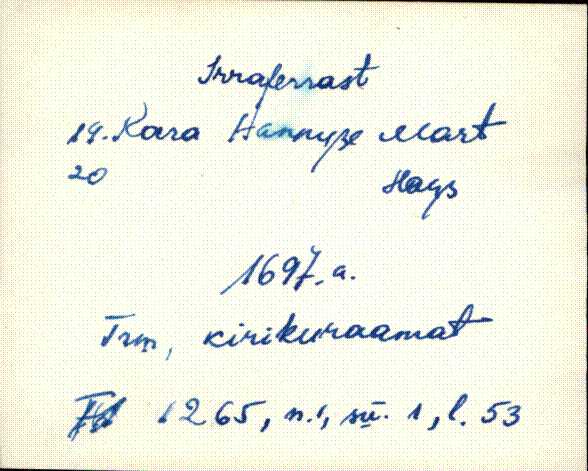 Irraferrast
19. Kara Hannuse Mart
20 Hays
1697. a.
Trm, kirikuraamat
1265, n. 1, sü. 1, l. 53